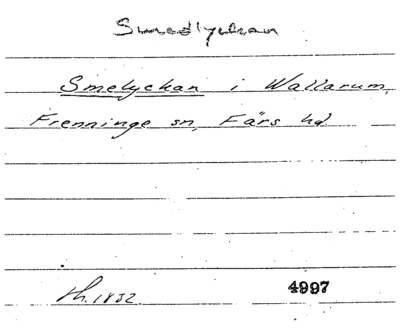 Smedlyckan
Smelyckan i Wallarum,
Frenninge sn, Färs hd
1832 4997